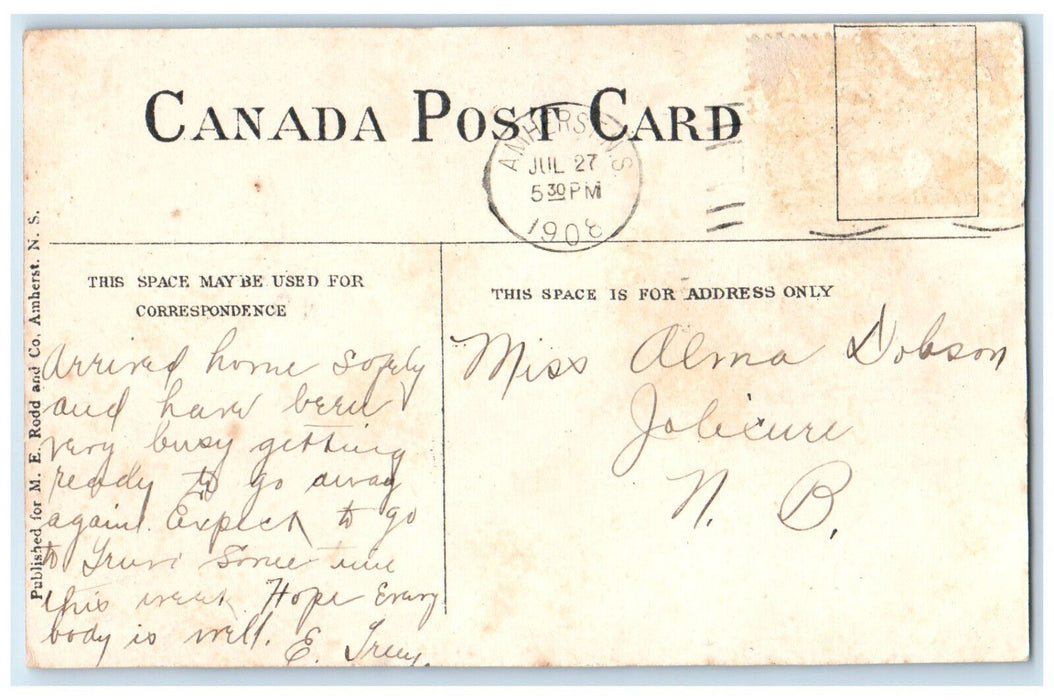 CANADA POST CARD
AMHERST. N.S.
JUL 27
5 30 PM
1908
Published for M. E. Rodd and Co. Amherst. N. S.
THIS SPACE MAY BE USED FOR
CORRESPONDENCE
THIS SPACE IS FOR ADDRESS ONLY
Arrived home safely
and have been
very busy getting
ready to go away
again. Expect to go
to some time
this week. Hope Every
body is well.
E.
Miss Alma Dobson
Jolicure
N. B.